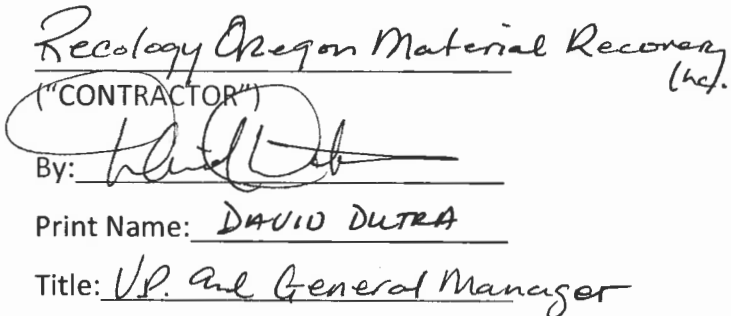 Recology Oregon Material Recovery
Inc.
("CONTRACTOR")
By: David Dutra
Print Name: DAVID DUTRA
Title: V.P. and General Manager